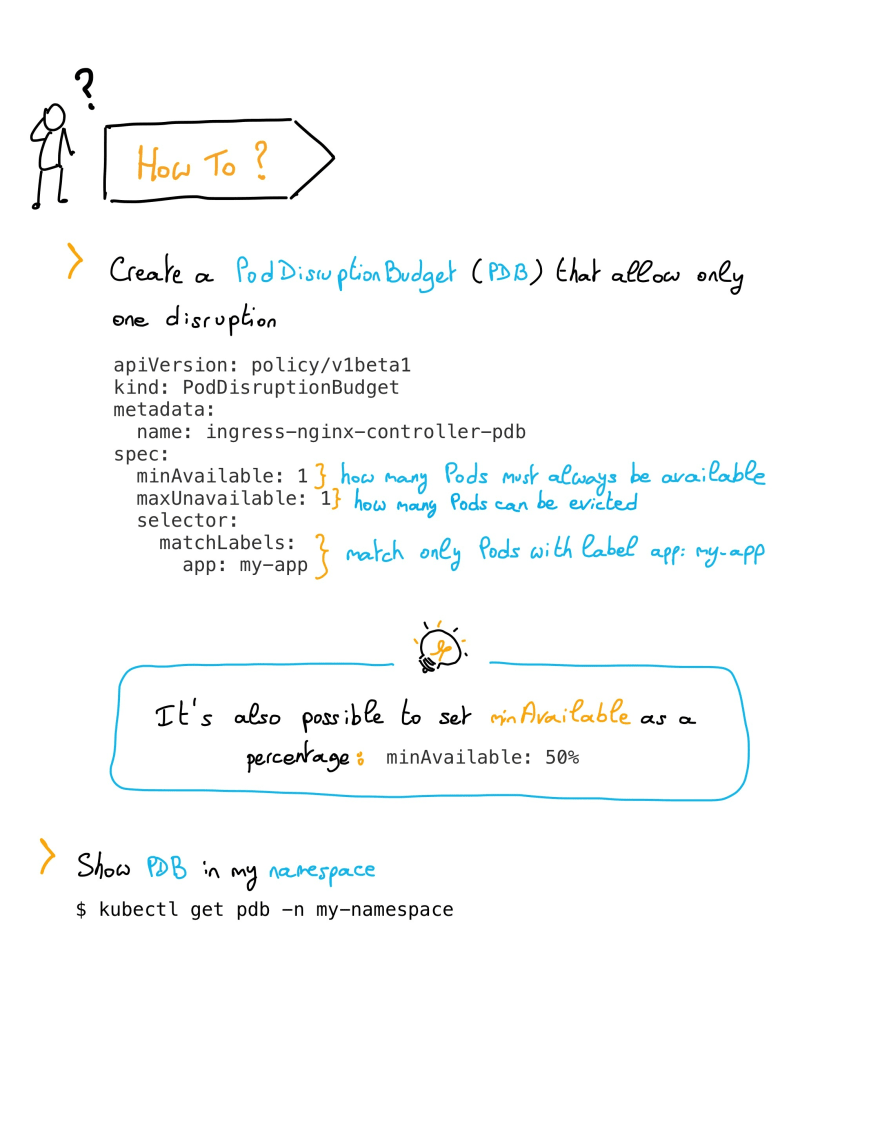 ?
How To ?
> Create a PodDisruptionBudget (PDB) that allow only
one disruption
apiVersion: policy/v1beta1
kind: PodDisruptionBudget
metadata:
  name: ingress-nginx-controller-pdb
spec:
  minAvailable: 1 } how many Pods must always be available
  maxUnavailable: 1} how many Pods can be evicted
  selector:
    matchLabels:
      app: my-app } match only Pods with label app: my-app
It's also possible to set minAvailable as a
percentage: minAvailable: 50%
> Show PDB in my namespace
$ kubectl get pdb -n my-namespace